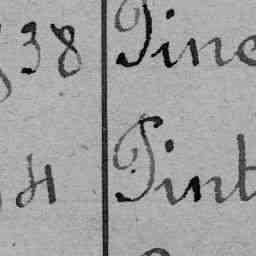 38 Pine
4 Pint